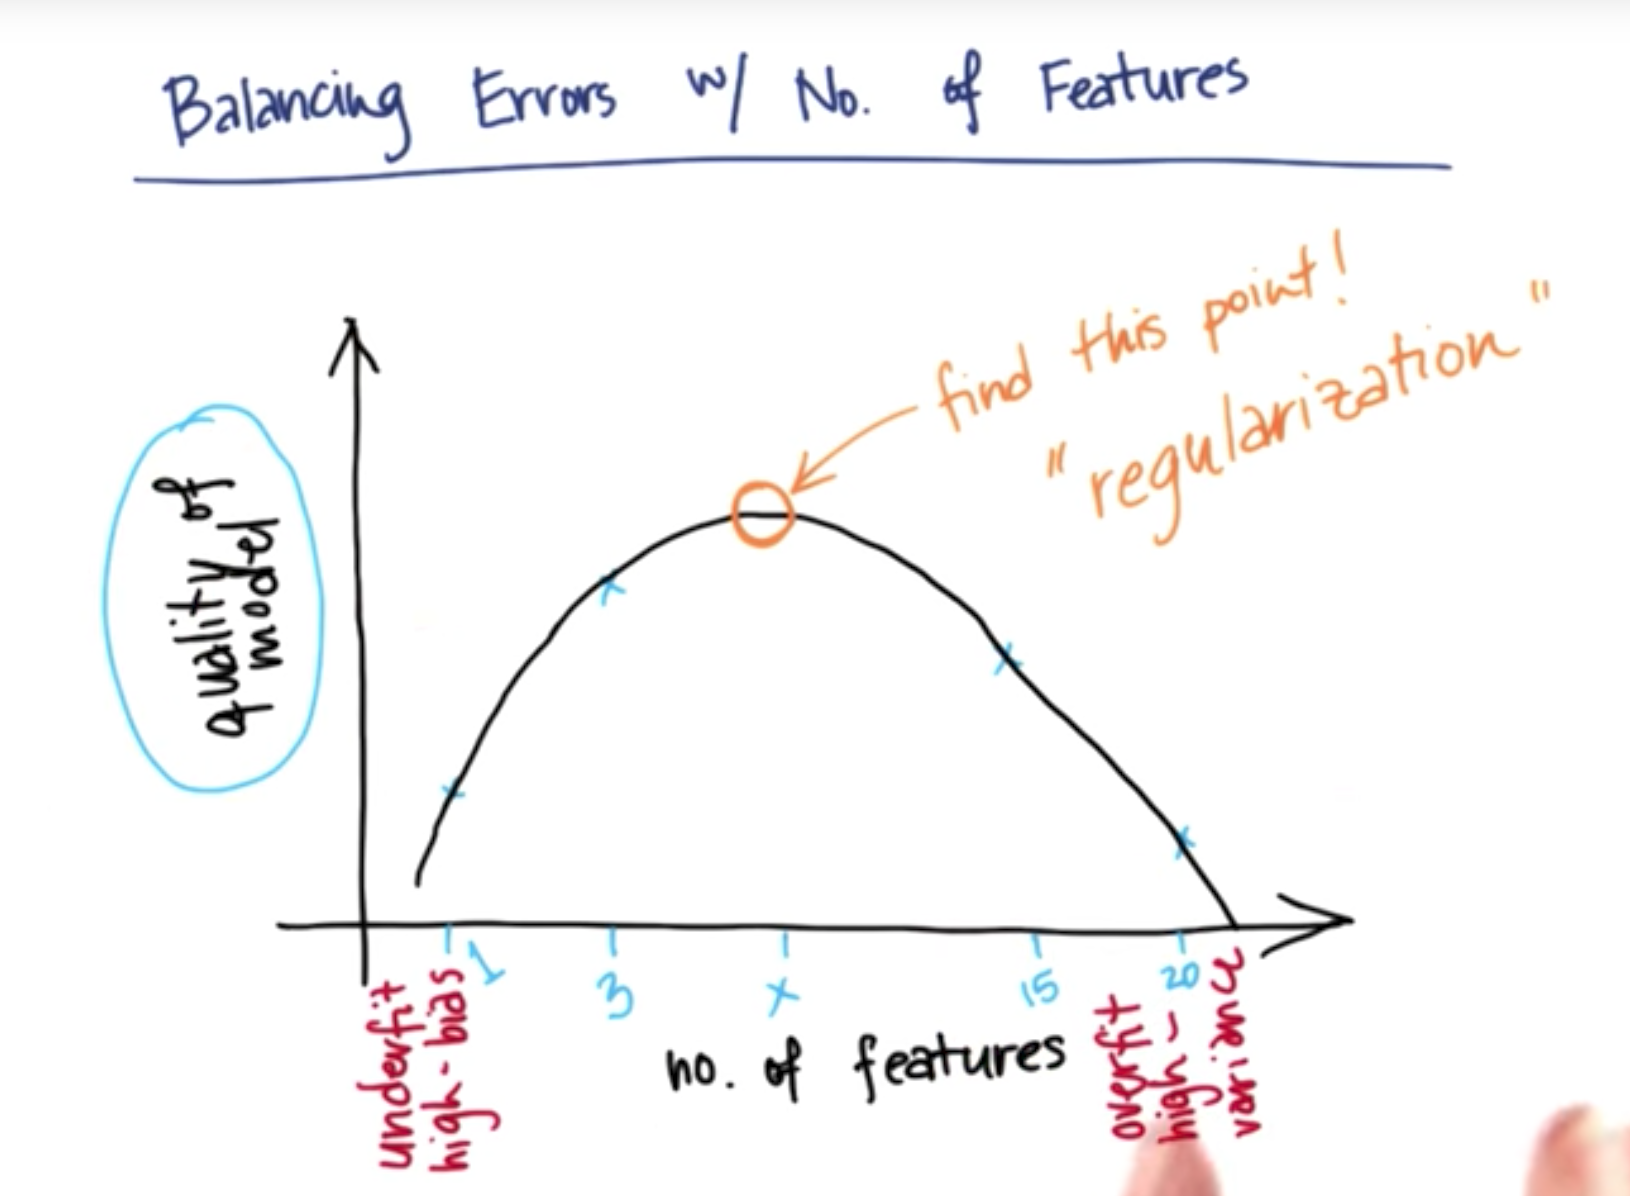 Balancing Errors w/ No. of Features
find this point!
"regularization"
quality of
model
1
3
x
15
20
no. of features
underfit
high-bias
overfit
high-
variance